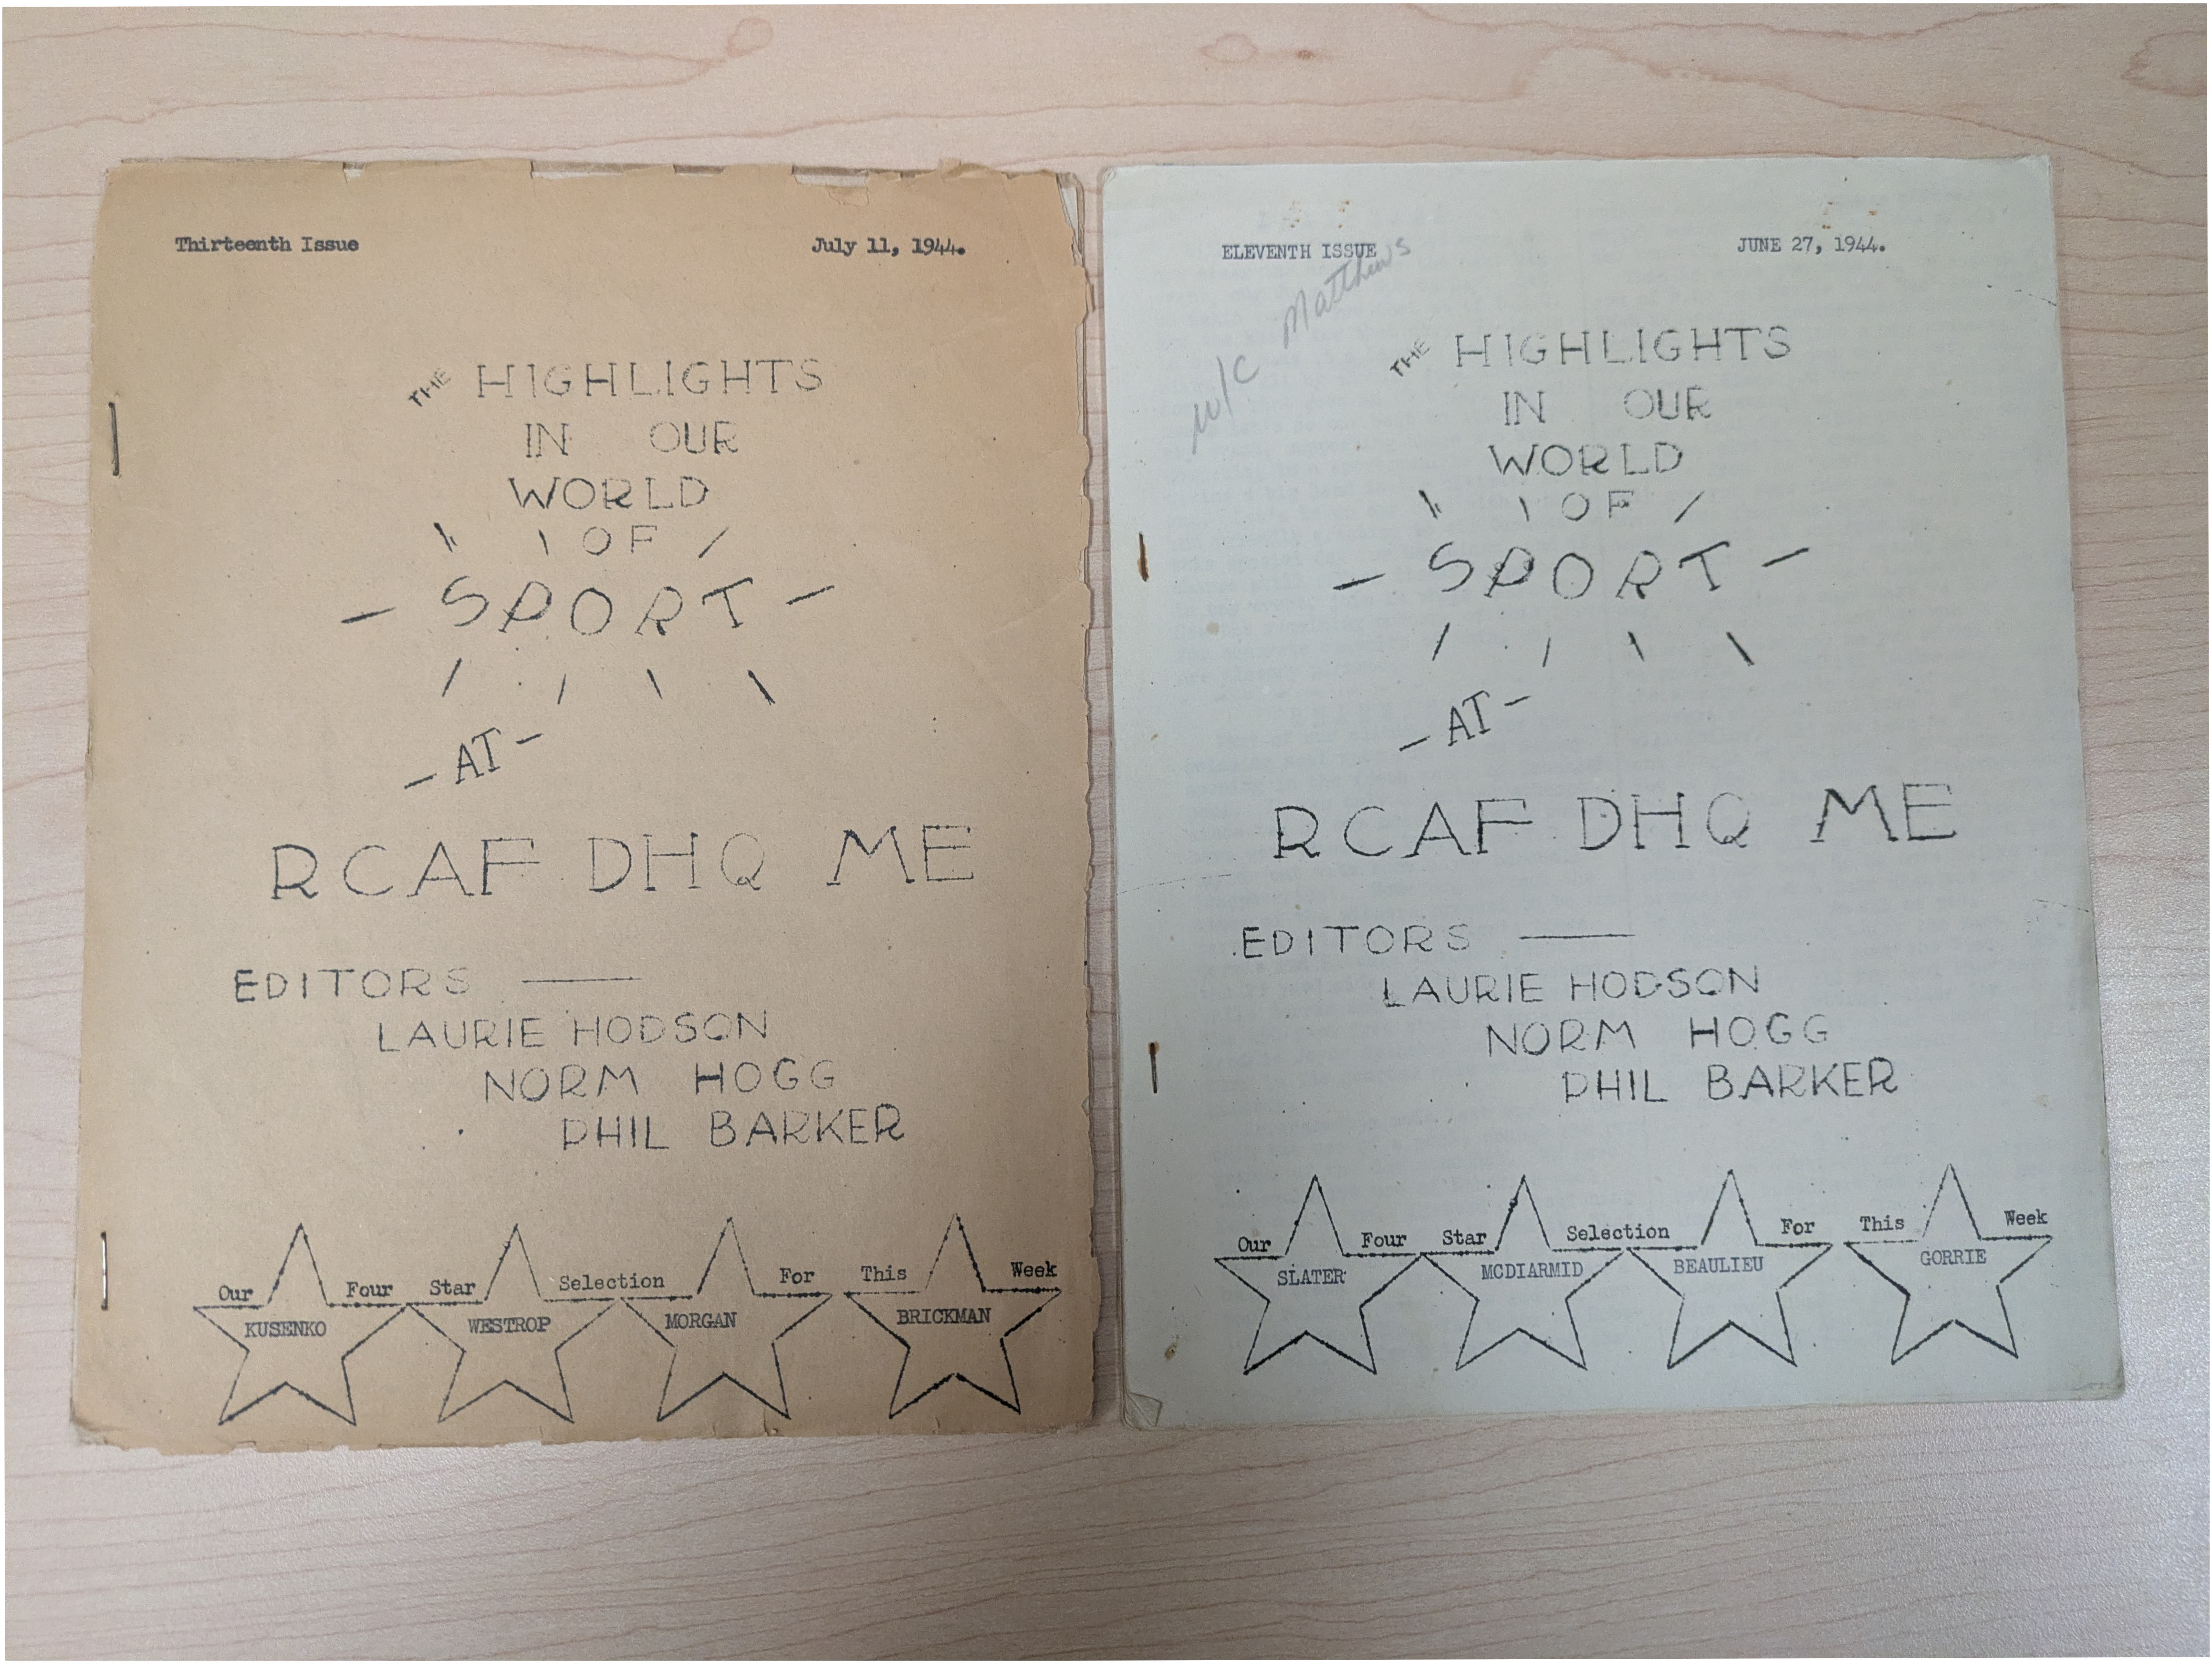 Thirteenth Issue July 11, 1944.
THE HIGHLIGHTS
IN OUR
WORLD
OF
SPORT
- AT -
RCAF DHQ ME
EDITORS —
LAURIE HODSON
NORM HOGG
PHIL BARKER
Our Four Star Selection For This Week
KUSENKO WESTROP MORGAN BRICKMAN
ELEVENTH ISSUE JUNE 27, 1944.
W/C Matthews
THE HIGHLIGHTS
IN OUR
WORLD
OF
SPORT
- AT -
RCAF DHQ ME
EDITORS —
LAURIE HODSON
NORM HOGG
PHIL BARKER
Our Four Star Selection For This Week
SLATER MCDIARMID BEAULIEU GORRIE